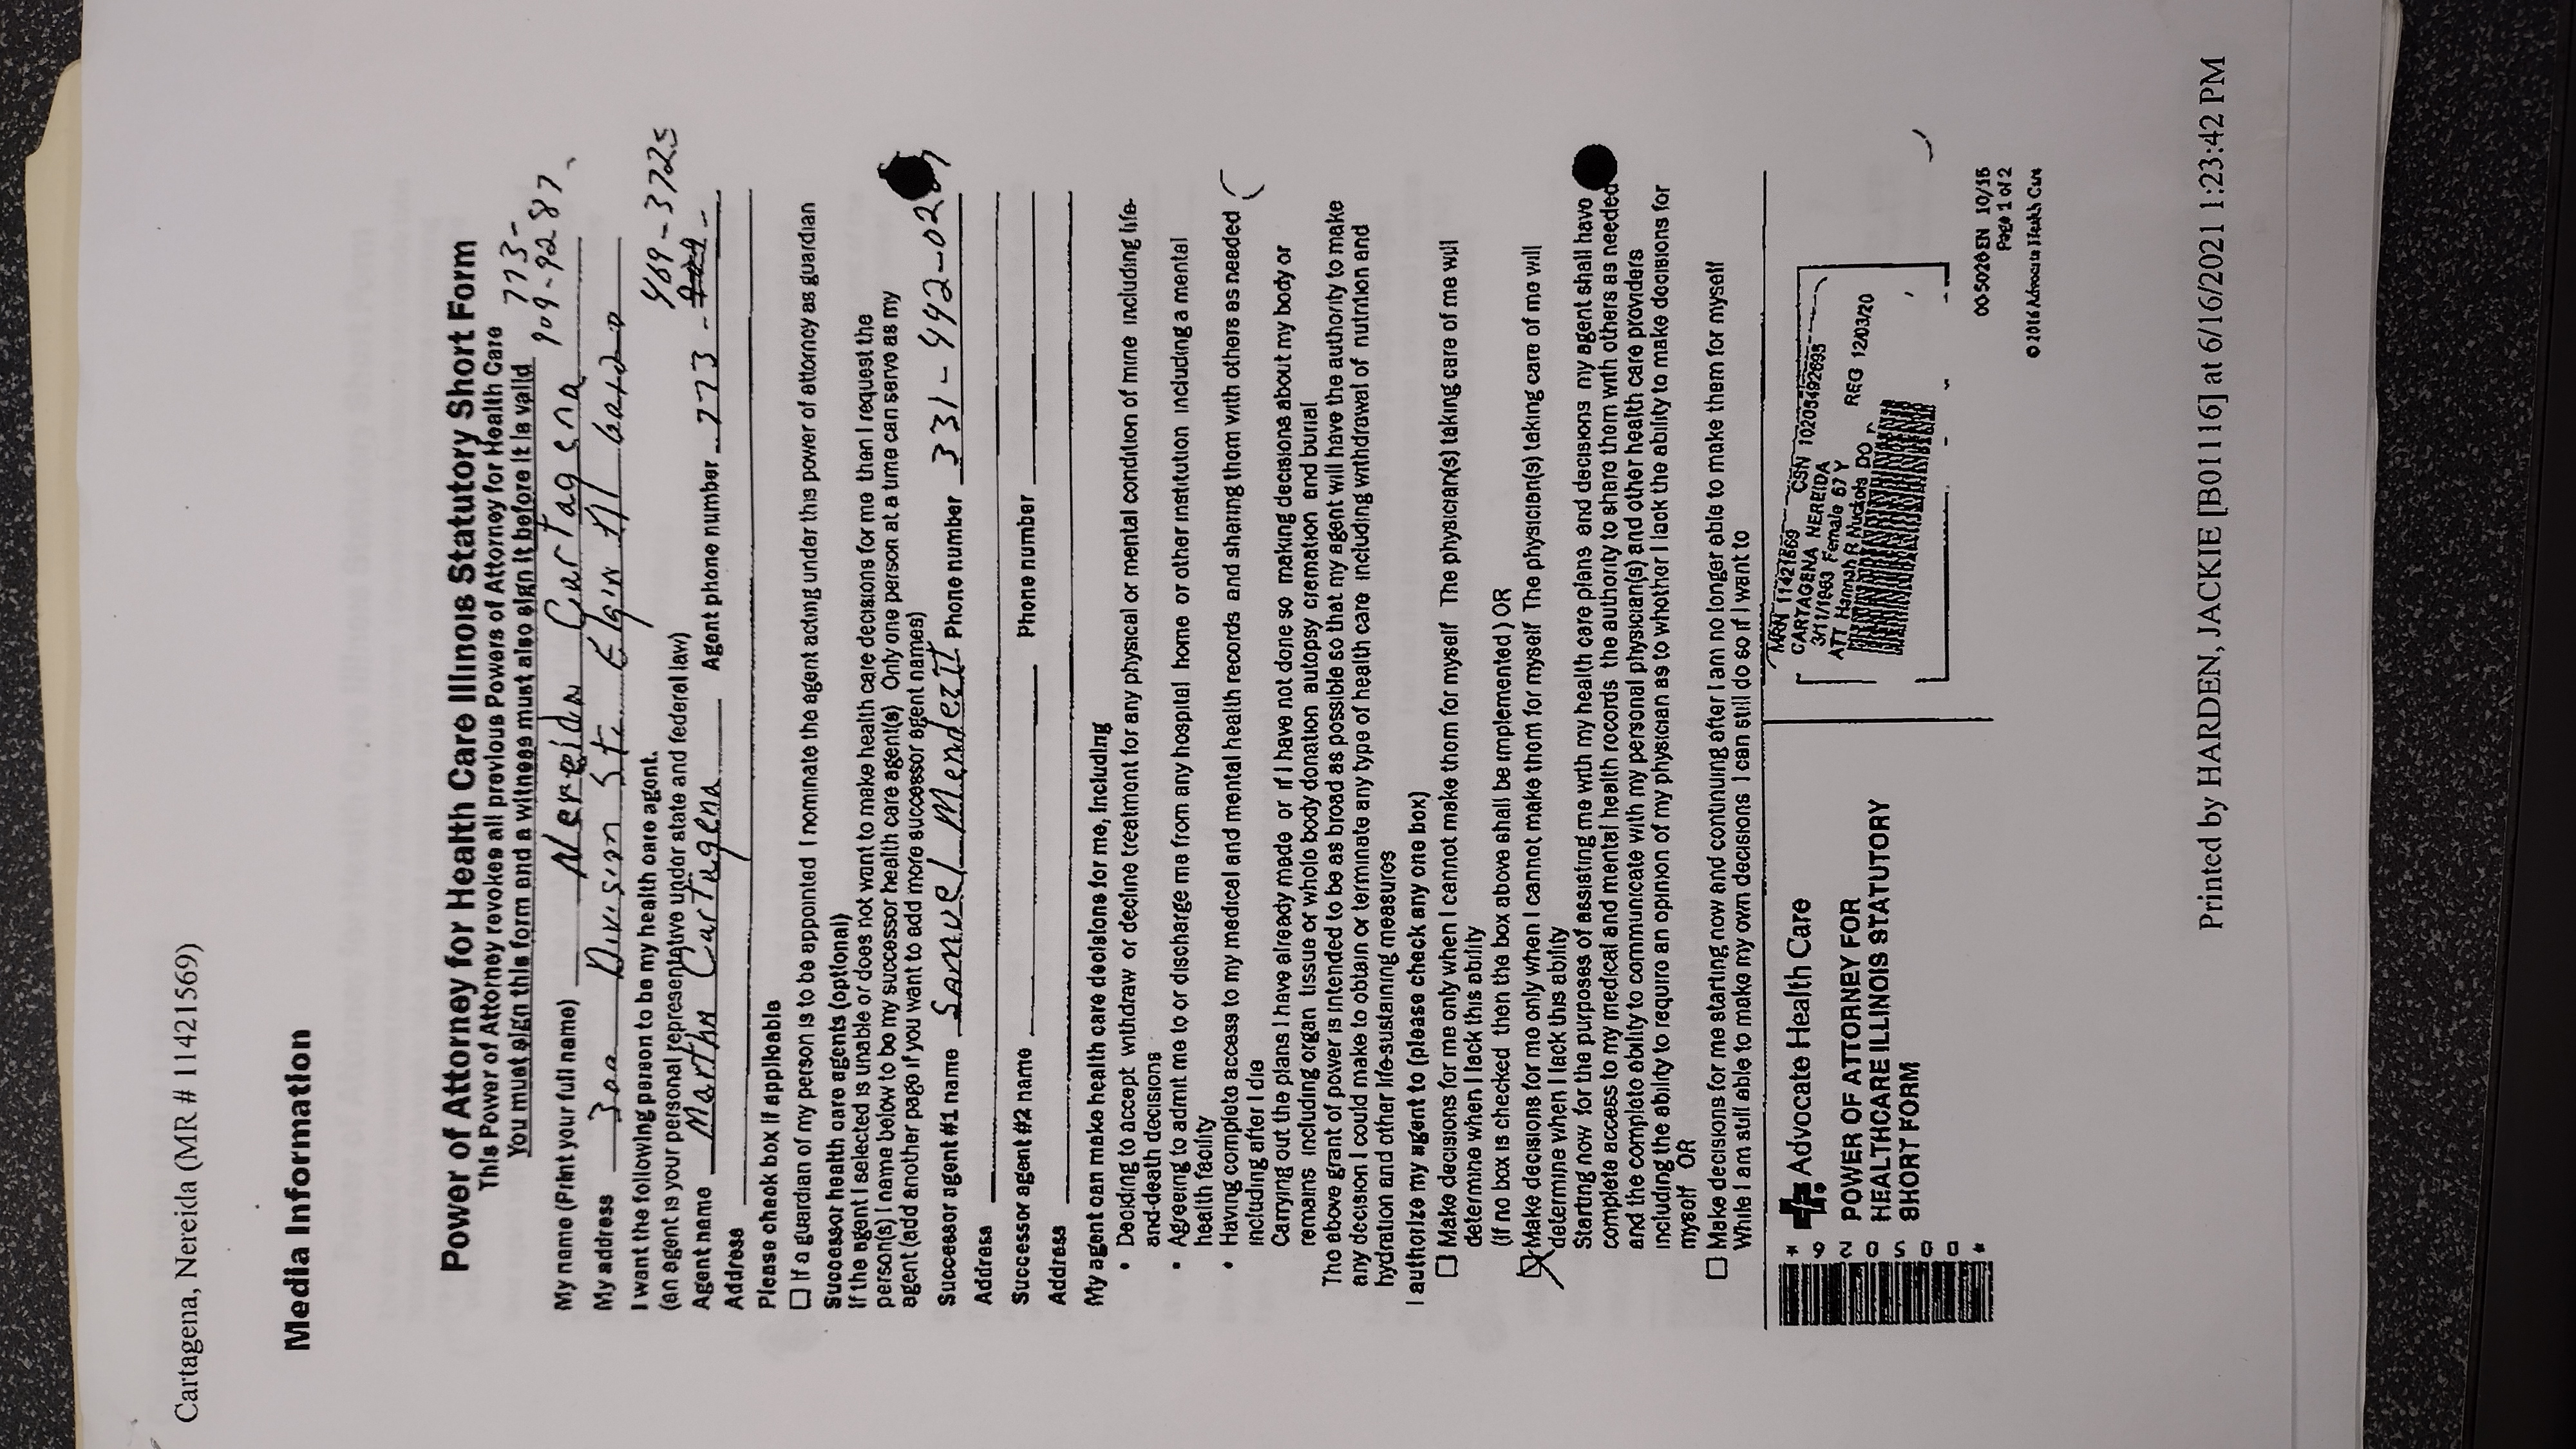 Cartagena, Nereida (MR # 11421569)
Media Information
Power of Attorney for Health Care Illinois Statutory Short Form
This Power of Attorney revokes all previous Powers of Attorney for Health Care
You must sign this form and a witness must also sign it before it is valid
773-
909-9287
My name (Print your full name) Nereida Cartagena
My address 300 Division St. Elgin Il 60120
I want the following person to be my health care agent.
(an agent is your personal representative under state and federal law)
469-3725
Agent name Martha Cartagena Agent phone number 773 -
Address
Please check box if applicable
☐ If a guardian of my person is to be appointed I nominate the agent acting under this power of attorney as guardian
Successor health care agents (optional)
If the agent I selected is unable or does not want to make health care decisions for me then I request the
person(s) I name below to be my successor health care agent(s) Only one person at a time can serve as my
agent (add another page if you want to add more successor agent names)
Successor agent #1 name Samuel Mendezit Phone number 331-442-02
Address
Successor agent #2 name Phone number
Address
My agent can make health care decisions for me, including
• Deciding to accept withdraw or decline treatment for any physical or mental condition of mine including life-
and-death decisions
• Agreeing to admit me to or discharge me from any hospital home or other institution including a mental
health facility
• Having complete access to my medical and mental health records and sharing them with others as needed
including after I die
Carrying out the plans I have already made or if I have not done so making decisions about my body or
remains including organ tissue or whole body donation autopsy cremation and burial
The above grant of power is intended to be as broad as possible so that my agent will have the authority to make
any decision I could make to obtain or terminate any type of health care including withdrawal of nutrition and
hydration and other life-sustaining measures
I authorize my agent to (please check any one box)
☐ Make decisions for me only when I cannot make them for myself The physician(s) taking care of me will
determine when I lack this ability
(If no box is checked then the box above shall be implemented) OR
☒ Make decisions for me only when I cannot make them for myself The physician(s) taking care of me will
determine when I lack this ability
Starting now for the purposes of assisting me with my health care plans and decisions my agent shall have
complete access to my medical and mental health records the authority to share them with others as needed
and the complete ability to communicate with my personal physician(s) and other health care providers
including the ability to require an opinion of my physician as to whether I lack the ability to make decisions for
myself OR
☐ Make decisions for me starting now and continuing after I am no longer able to make them for myself
While I am still able to make my own decisions I can still do so if I want to
* 9 2 0 5 0 0 *
Advocate Health Care
POWER OF ATTORNEY FOR
HEALTHCARE ILLINOIS STATUTORY
SHORT FORM
MRN 11421569 CSN 10205492695
CARTAGENA NEREIDA
3/11/1953 Female 67 Y
ATT Hannah R Nuckols DO REG 12/03/20
00 5020 EN 10/16
Page 1 of 2
© 2016 Advocate Health Care
Printed by HARDEN, JACKIE [B01116] at 6/16/2021 1:23:42 PM